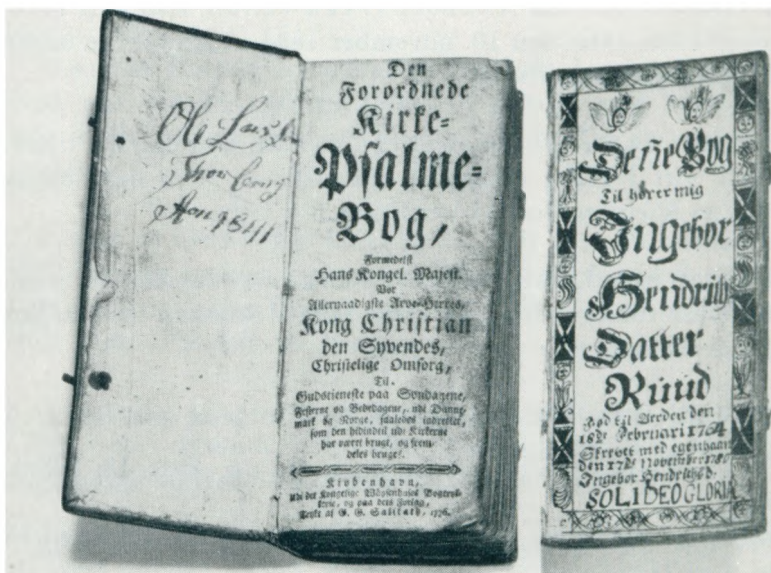 Ole
Thor
1841
Den
Forordnede
Kirke-
Psalme-
Bog,
Formedelst
Hans Kongel. Majest.
Vor
Allernaadigste Arve-Herres,
Kong Christian
den Syvendes,
Christelige Omsorg,
Til
Gudstieneste paa Søndagene,
Festerne og Bededagene, udi Danne-
mark og Norge, saaledes indrettet,
som den hidindtil udi Kirkerne
har været brugt, og frem-
deles bruges.
Kiøbenhavn,
udi det Kongelige Wäysenhuses Bogtryk-
kerie, og paa dets Forlag,
Trykt af G. G. Salikath, 1776.
Denne Bog
Til hører mig
Ingebor
Hendrichs
Datter
Ruud
Fød til Verden den
18de Februari 1764
Skrevet med egenhaan
den 17de November
Ingebor
SOLI DEO GLORIA